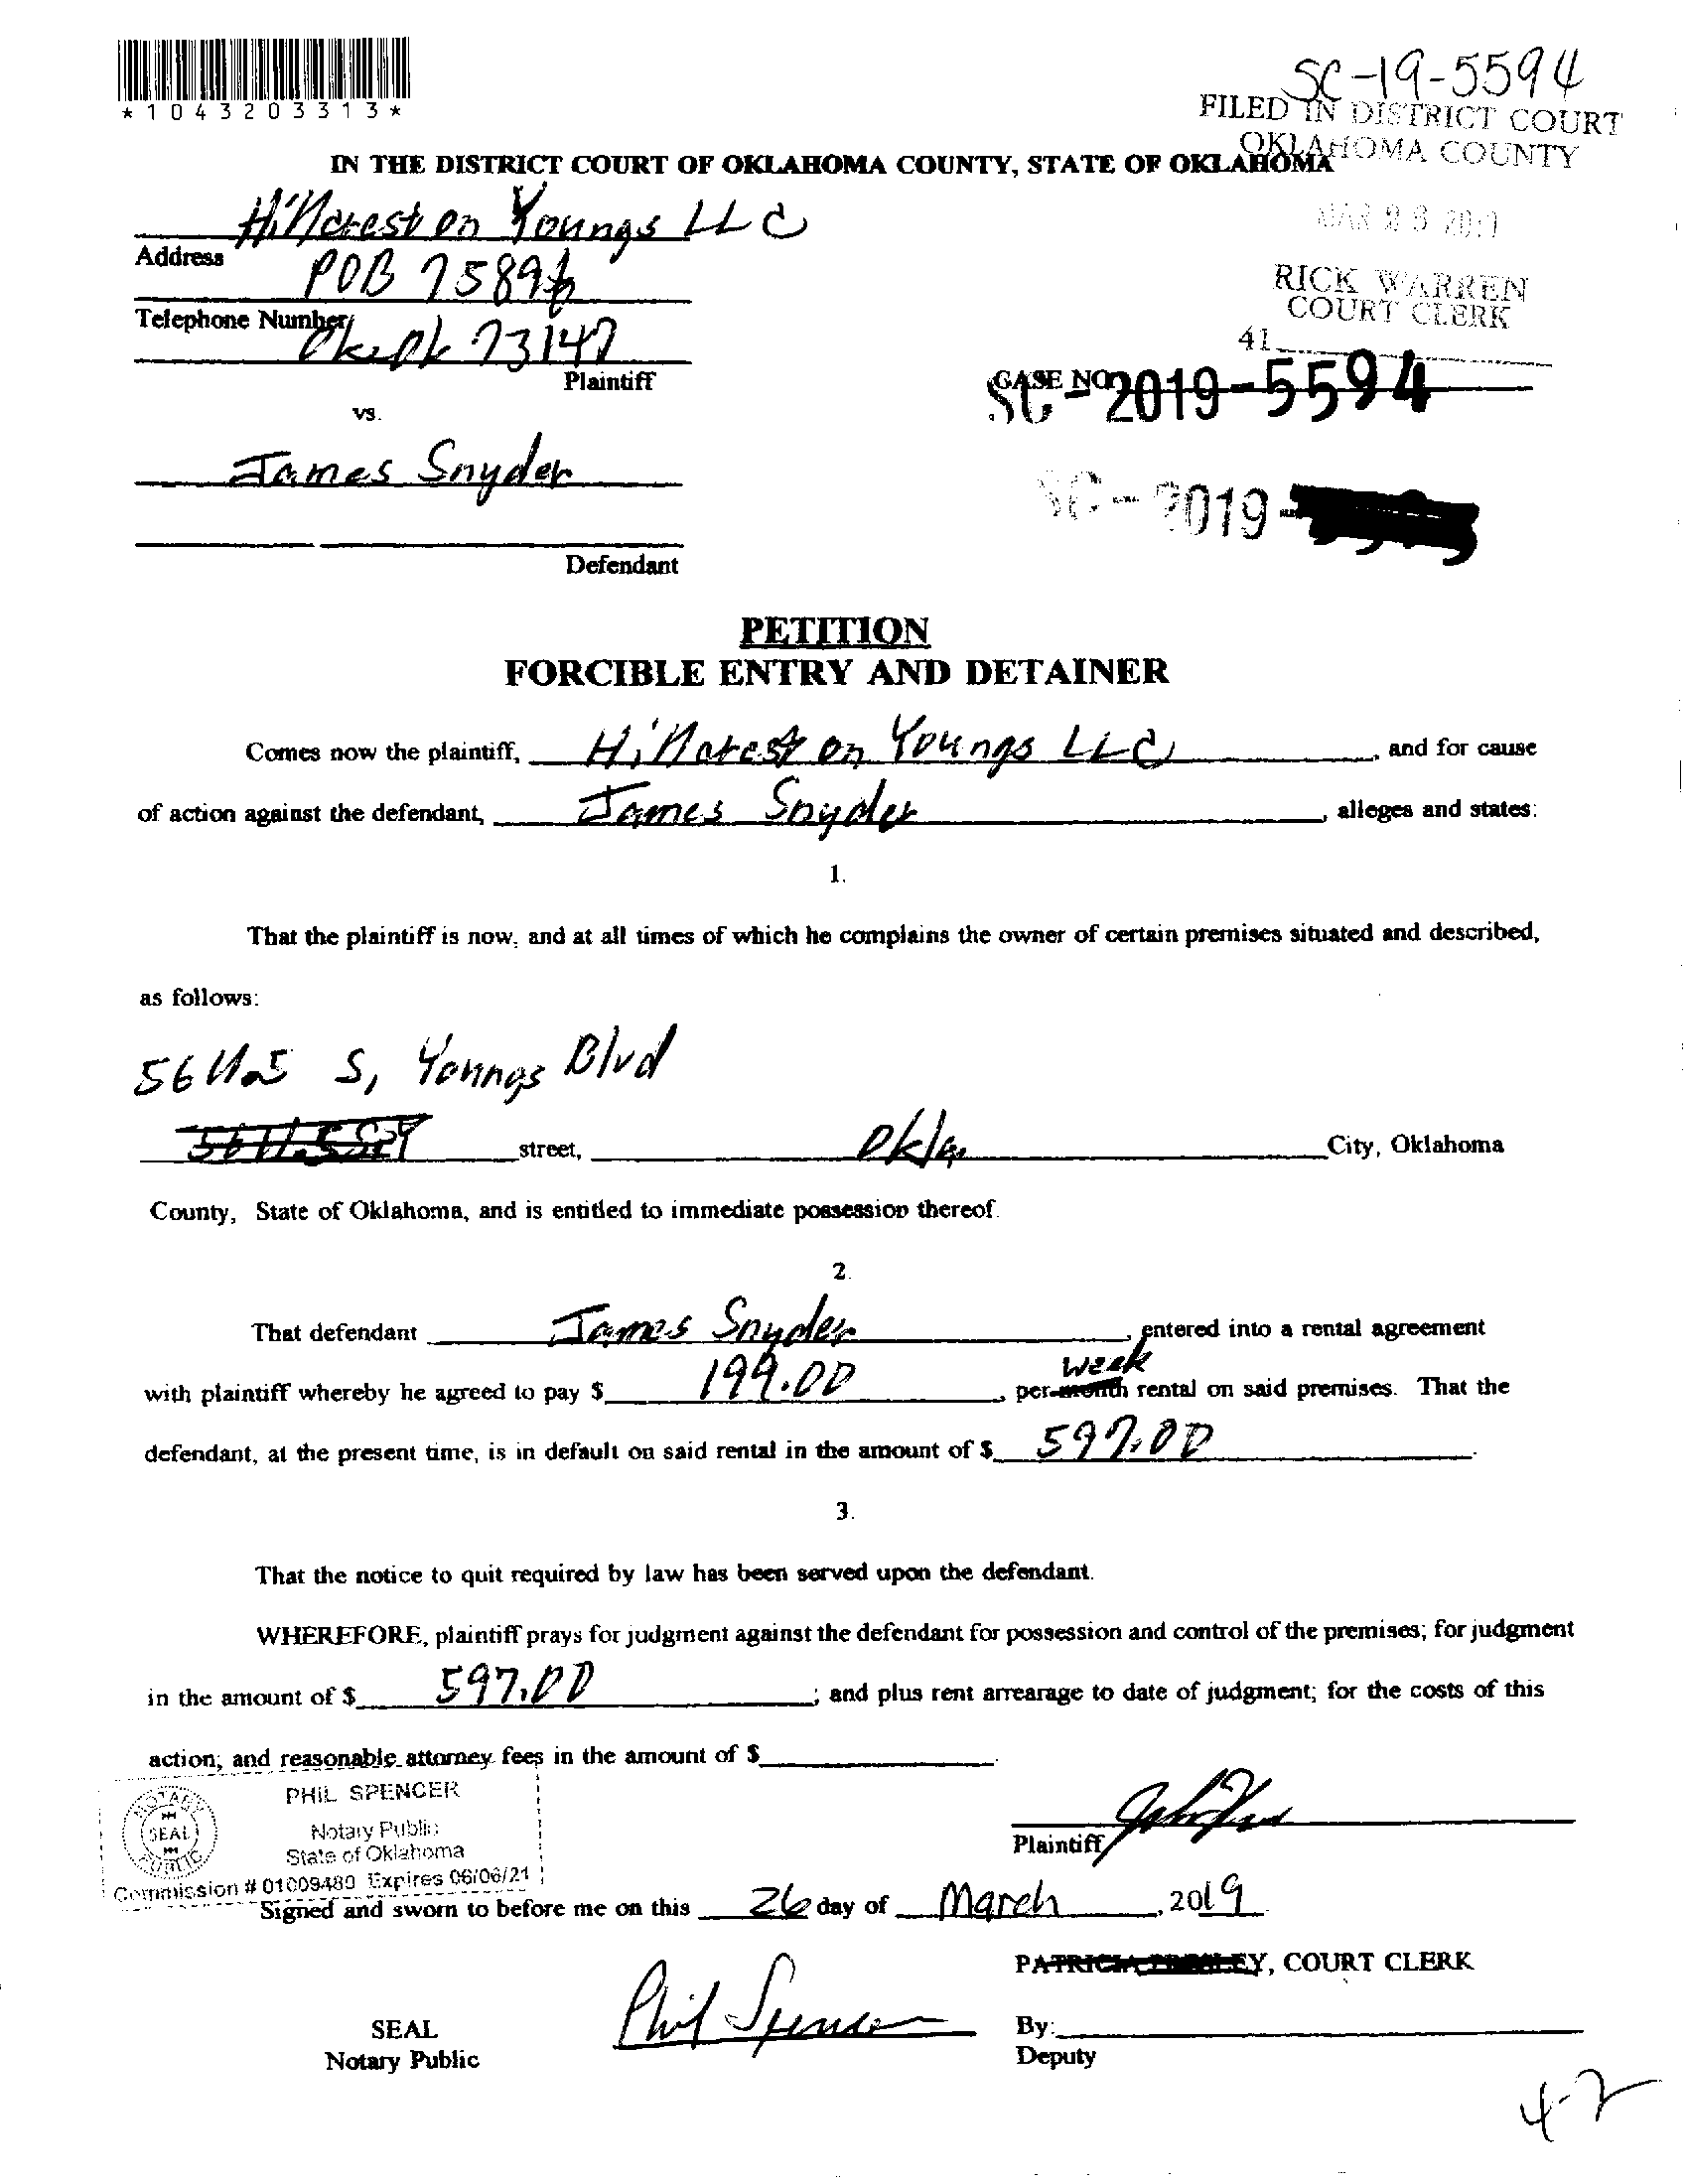 *1043203313*
SC-19-5594
FILED IN DISTRICT COURT
OKLAHOMA COUNTY
IN THE DISTRICT COURT OF OKLAHOMA COUNTY, STATE OF OKLAHOMA
Hillcrest on Youngs LLC
Address
POB 75896
Telephone Number
73147
Plaintiff
RICK WARREN
COURT CLERK
41
CASE NO.
SC-2019-5594
vs.
James Snyder
SC-2019-
Defendant
PETITION
FORCIBLE ENTRY AND DETAINER
Comes now the plaintiff, Hillcrest on Youngs LLC, and for cause
of action against the defendant, James Snyder, alleges and states:
1.
That the plaintiff is now, and at all times of which he complains the owner of certain premises situated and described,
as follows:
S, Youngs Blvd
street, Okla, City, Oklahoma
County, State of Oklahoma, and is entitled to immediate possession thereof.
2.
That defendant James Snyder, entered into a rental agreement
week
with plaintiff whereby he agreed to pay $ 199.00, per month rental on said premises. That the
defendant, at the present time, is in default on said rental in the amount of $ 597.00.
3.
That the notice to quit required by law has been served upon the defendant.
WHEREFORE, plaintiff prays for judgment against the defendant for possession and control of the premises; for judgment
in the amount of $ 597.00; and plus rent arrearage to date of judgment; for the costs of this
action; and reasonable attorney fees in the amount of $
PHIL SPENCER
NOTARY SEAL PUBLIC
Notary Public
State of Oklahoma
Commission # 01009480 Expires 06/06/21
Plaintiff
Signed and sworn to before me on this 26 day of March, 2019
PATRICIA PRESLEY, COURT CLERK
Phil Spencer
SEAL
By:
Notary Public
Deputy
4-2